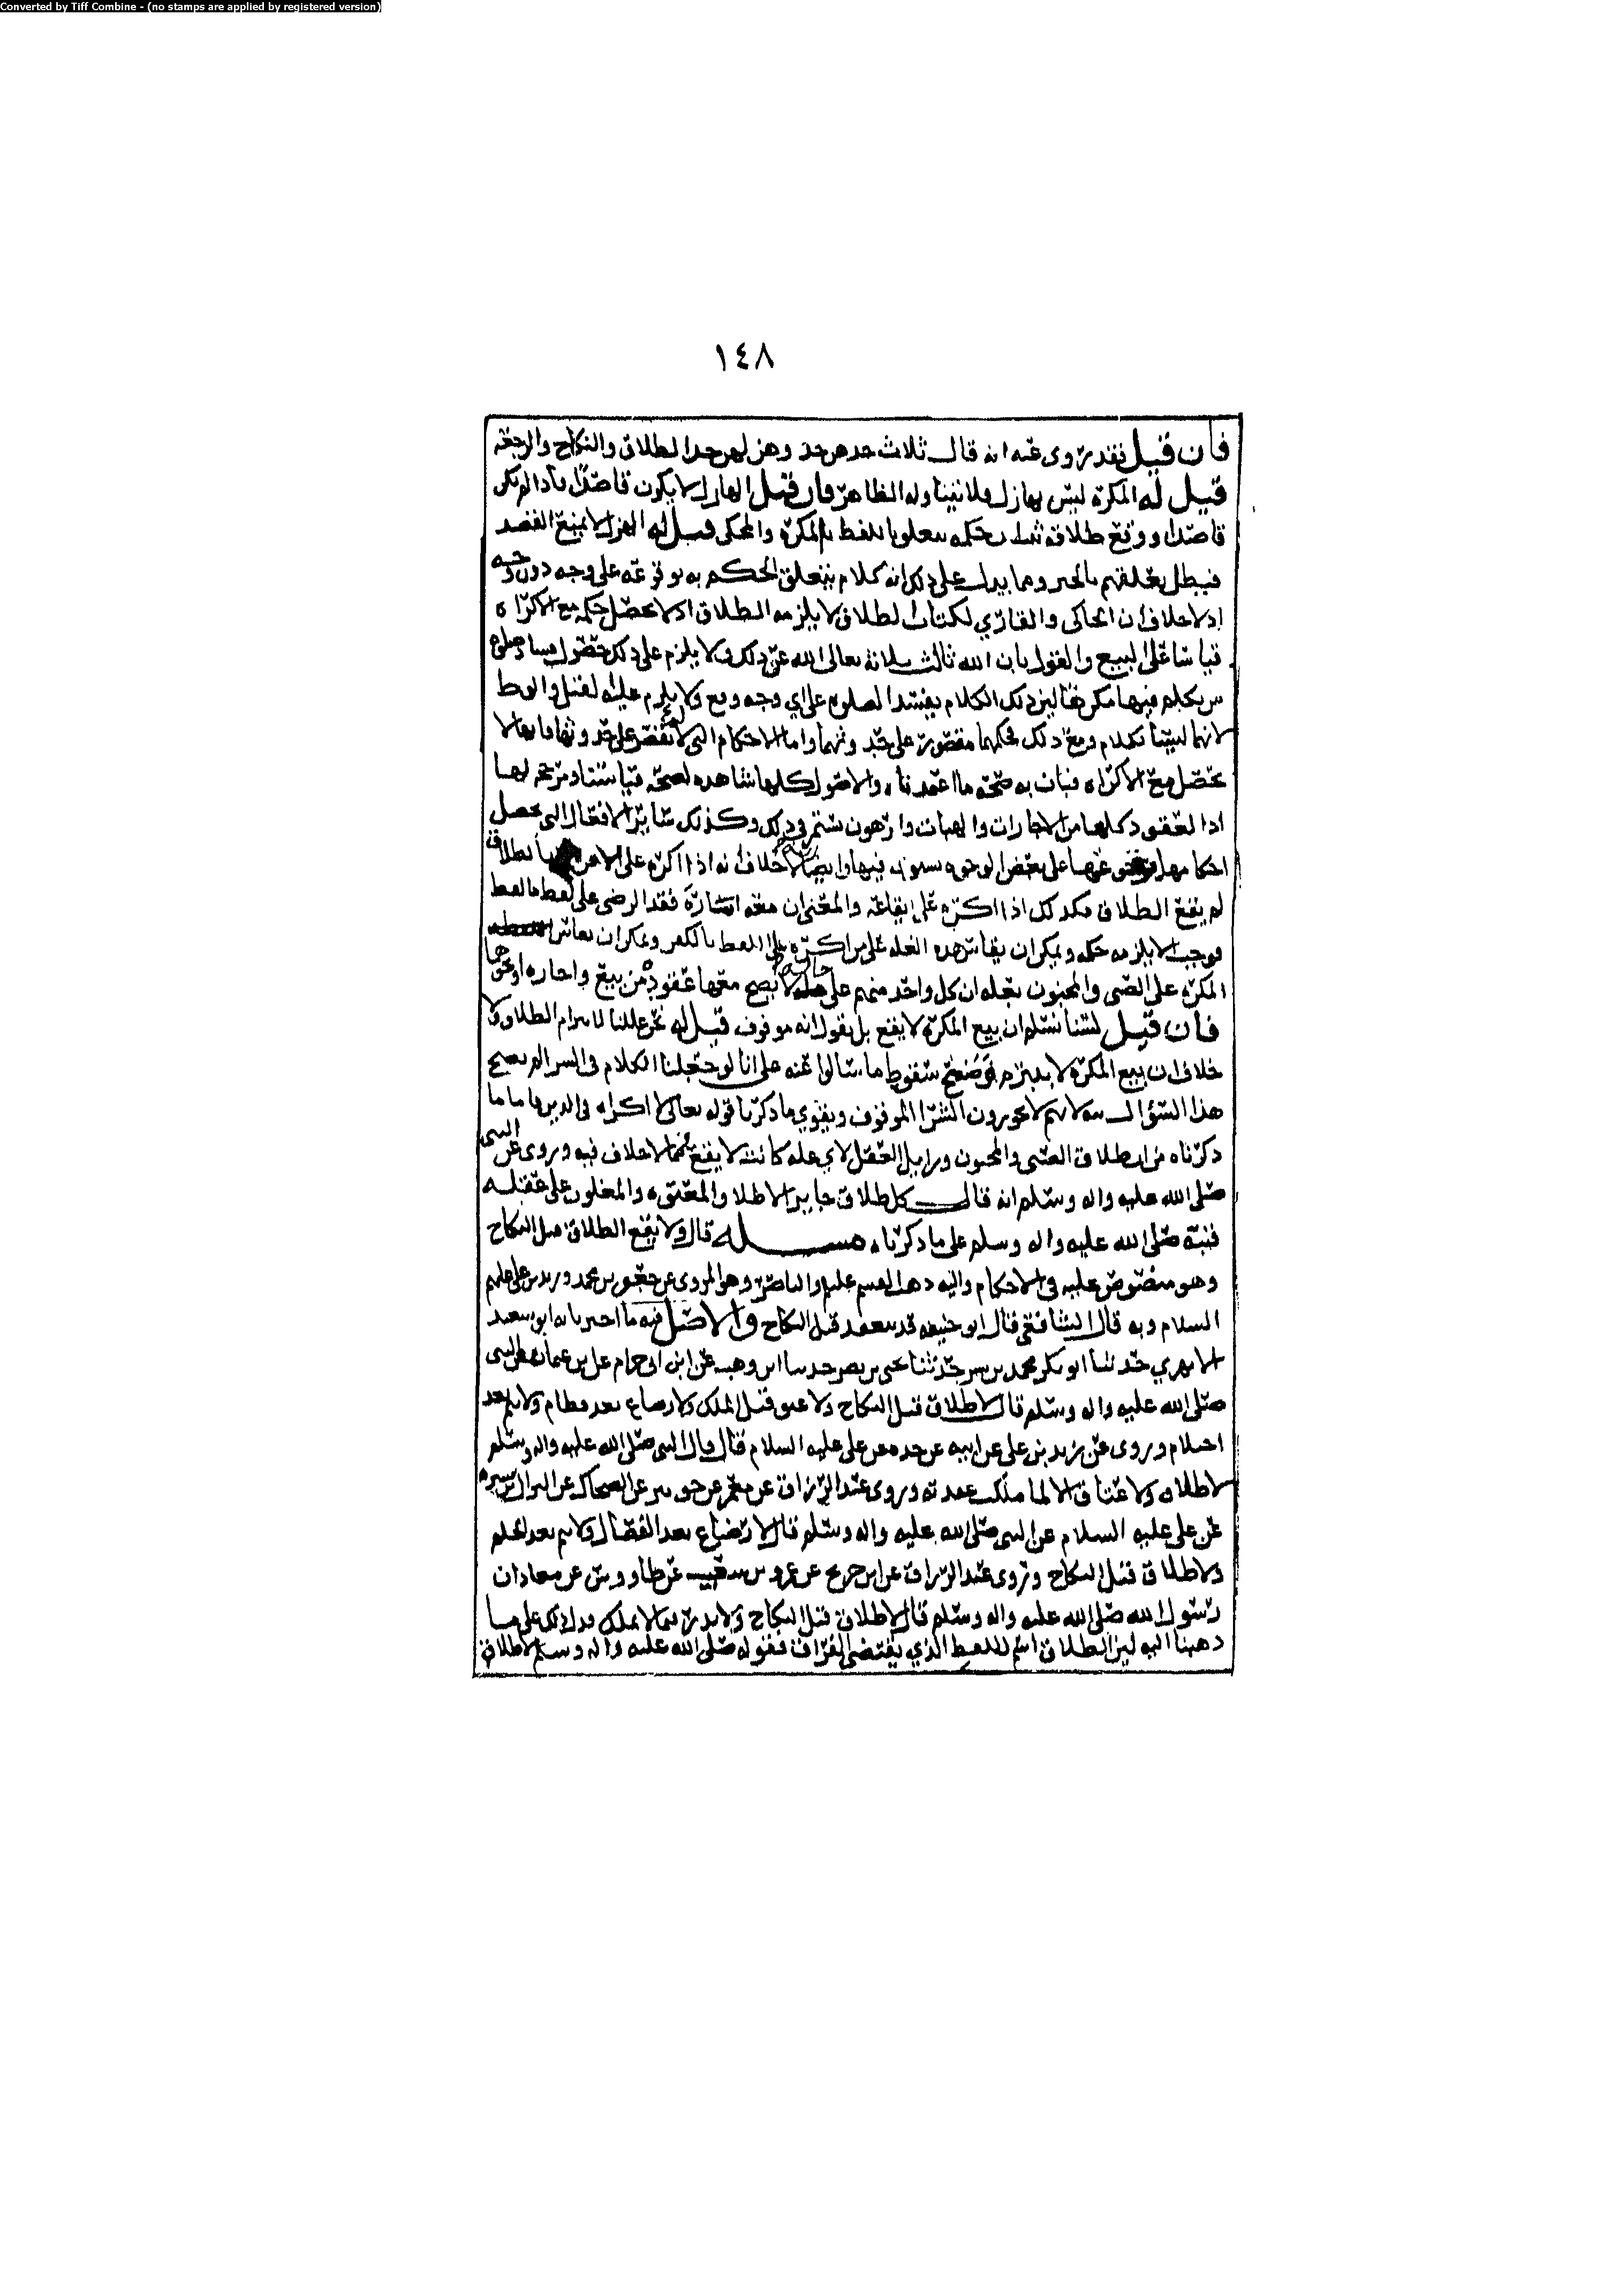 Converted by Tiff Combine - (no stamps are applied by registered version)
١٤٨
فان قيل فقد روى عنه انه قال ثلاث جدهن جد وهزلهن جد الطلاق والنكاح والرجعه
قيل له المكره ليس بهازل فلا يتناوله الظاهر فان قيل الهازل لا يكون قاصدا فاذا لم يكن
قاصدا ووقع طلاقه ثبت ان حكمه معلق باللفظ كالمكره والمحكى قيل له الهزل لا يمنع القصد
فيبطل تعلقهم بالخبر ومما يدل على ذلك انه كلام يتعلق الحكم به بوقوعه على وجه دون وجه
اذ لا خلاف ان الحاكى والقاري لكتاب الطلاق لا يلزمه الطلاق اذ لا يحصل حكمه مع الاكراه
قياسا على البيع والقول بان الله ثالث ثلاثه تعالى الله عن ذلك ولا يلزم على ذلك حصول فساد صلوه
من تكلم فيها مكرها لان ذلك الكلام يفسد الصلوه على اي وجه وقع ولا يلزم عليه القتل والوطا
لانهما ليسا بكلام ومع ذلك فحكمهما مقصور على حد وثهما واما الاحكام التى لا تقتصر على حد وثهما فانها لا
تحصل مع الاكراه فبان به صحه ما اعتمدناه والاصول كلها شاهده لصحه قياسنا ومرجحه لها
اذ العقود كلها من الاجارات والهبات والرهون تستمر فى ذلك وكذلك سائر الافعال التى تحصل
احكامها بوقوعها على بعض الوجوه وايضا لا خلاف انه اذا اكره على الاقرار بالطلاق
لم يقع الطلاق فكذلك اذا اكره على ايقاعه والمعنى ان معه اشاره فقد الرضى على لفظ ما لفظ
فوجب الا يلزمه حكمه ويمكن ان يقاس هذه العله على من اكره على اللفظ بالكفر ويمكن ان يقاس
المكره على الصبى والمجنون بعله ان كل واحد منهم على حاله لا يصح معها عقوده من بيع واجاره او نحوها
فان قيل لسنا نسلم ان بيع المكره لا يقع بل نقول انه موقوف قيل له نحن عللنا لالزام الطلاق ولا
خلاف ان بيع المكره لا يلزم فوضح سقوط ما سالوا عنه على انا لو جعلنا الكلام فى الشرا لم يصح
هذا السؤال لانهم لا يجوزون الشرا الموقوف ويقوي ما ذكرنا قوله تعالى لا اكراه فى الدين فاما ما
ذكرناه من ان طلاق الصبى والمجنون وزايل العقل لاي عله كانت لا يقع فمما لا خلاف فيه وروى عن النبى
صلى الله عليه واله وسلم انه قال كل طلاق جايز الا طلاق المعتوه والمغلوب على عقله
فنبه صلى الله عليه واله وسلم على ما ذكرناه مسله قال ولا يقع الطلاق قبل النكاح
وهو منصوص عليه فى الاحكام واليه ذهب القسم عليه والناصر وهو المروى عن جعفر بن محمد وزيد بن على عليهم
السلام وبه قال الشافعى قال ابو حنيفه قد ينعقد قبل النكاح والاصل فيه ما اخبرنا به ابو سعيد
الابهري حدثنا ابو بكر محمد بن بسر حدثنا يحيى بن نصر حدثنا ابن وهب عن ابن ابى عن النبى
صلى الله عليه واله وسلم قال لا طلاق قبل النكاح ولا عتق قبل الملك ولا رضاع بعد فطام ولا يتم بعد
احتلام وروى عن زيد بن على عن ابيه عن جده عن على عليه السلام قال قال النبى صلى الله عليه واله وسلم
لا طلاق ولا عتاق الا لما ملكت عقدته وروى عبد الرزاق عن معمر عن جويبر عن الضحاك عن النزال بن سبره
عن على عليه السلام عن النبى صلى الله عليه واله وسلم قال لا رضاع بعد الفصال ولا يتم بعد الحلم
ولا طلاق قبل النكاح وروى عبد الرزاق عن ابن جريج عن عمرو بن شعيب عن طاووس عن معاذ ان
رسول الله صلى الله عليه واله وسلم قال لا طلاق قبل النكاح ولا نذر فيما لا يملك ودل ذلك على ما
ذهبنا اليه لان الطلاق اسم للفظ الذي يقتضى الفراق فقوله صلى الله عليه واله وسلم لا طلاق